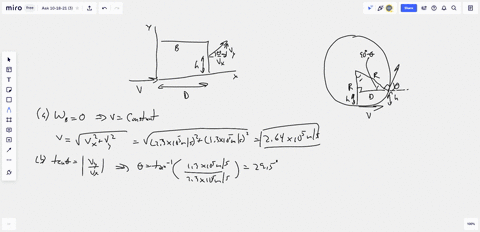 miro
free
Ask 10-18-21 (3)
Share
Y
B
h
Vy
Vx
X
V
D
90°-θ
R
R
θ
h
D
h
V
(a) W_B = 0 ⇒ V = Constant
V = √(Vx² + Vy²) = √((2.3 x 10⁵ m/s)² + (1.3 x 10⁵ m/s)²) = 2.64 x 10⁵ m/s
(b) tanθ = |Vy/Vx| ⇒ θ = tan⁻¹(1.3 x 10⁵ m/s / 2.3 x 10⁵ m/s) = 29.5°
100%